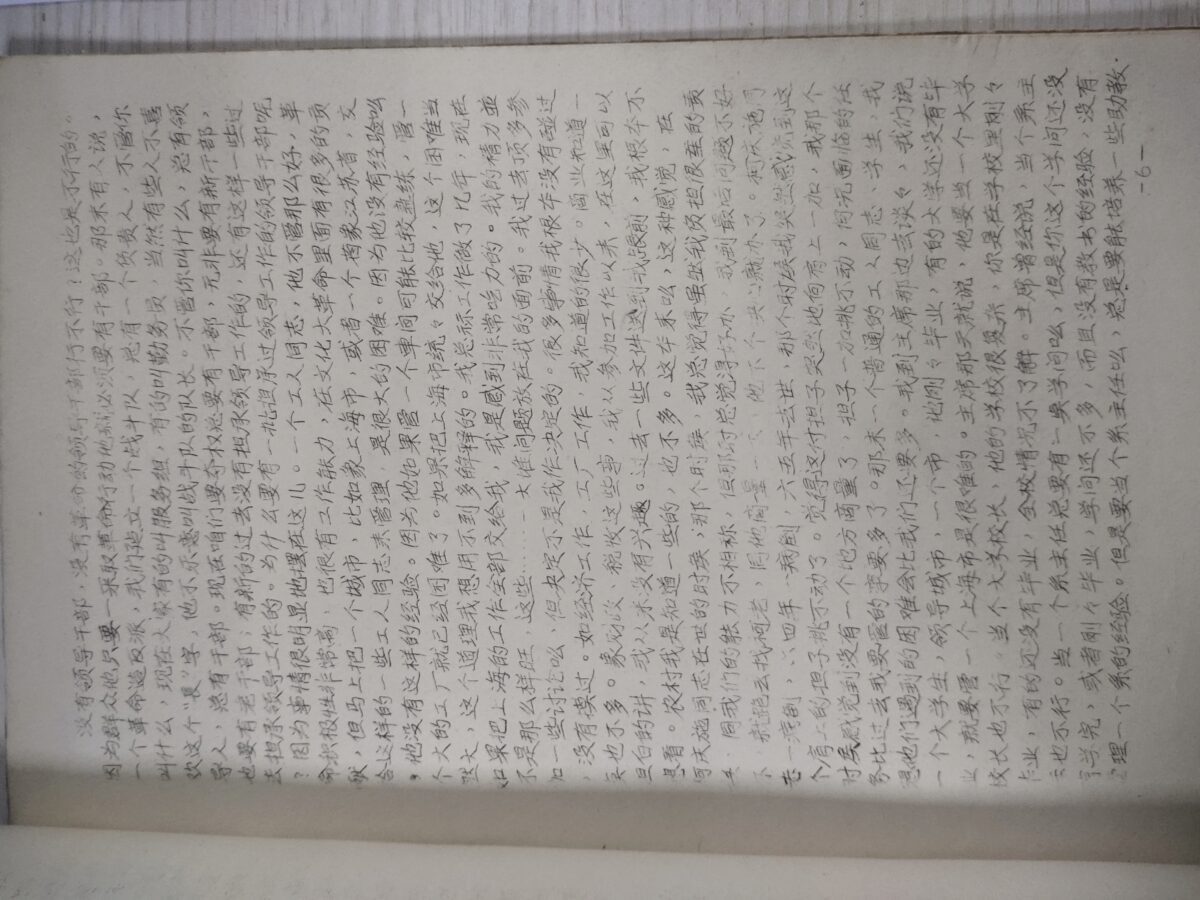 没有领导干部，没有革命的领导干部行不行？这也是不行的。
因为群众他只要一采取革命行动他就必须要有干部。那末有人说，
一个革命造反派，我们建立一个战斗队，总有一个负责人，不管你
叫什么，现在大家有的叫服务组，有的叫勤务员，当然有些人不喜
欢这个“长”字，他不乐意叫战斗队的队长。不管你叫什么，总有领
导人，总有干部。现在咱们要夺权总要有干部，无非要有新干部，
也要有老干部；有新的过去没有担承领导工作的，还有这样一些过
去担承领导工作的。为什么要有一批担承过领导工作的领导干部呢
？因为事情很明显地摆在这儿。一个工人同志，他不管那么好，革
命积极性非常高，也很有工作能力，在文化大革命里面有很多的贡
献，但马上把一个城市，比如象上海市，或者一个省象江苏省，交
给这样的一些工人同志来管理，是很大的困难。因为他没有经验么
，他没有这样的经验。因为他如果管一个车间可能比较熟练，管一
个大的工厂就已经困难了。如果把上海市统々交给他，这个困难当
然大，这个道理我想用不到多解释的。我总祘工作做了几年，现在
如果把上海的工作全部交给我，我是感到非常吃力的。我的精力並
不是那么样旺，这些……一大堆问题放在我的面前。我过去顶多参
加一些讨论么，但决定不是我作决定的。很多事情我根本没有碰过
，没有摸过。如经济工作，工厂工作，我知道的很少。商业知道一
也不多。象财政、税收这些事，我从参加工作以来，在这里可以
坦白的讲，我从来没有兴趣。过去一些文件送到我跟前，我根本不
看。农村我是知道一些的，也不多。这本来么，这种感觉，在
柯庆施同志在世的时候，那个时候，我总觉得虽然我负担很重的责
同我们的能力不相称，但那时总觉得好办，我到最后问题不好
就跑去找柯老，同他商量一下，他下个决心就办了。柯庆施同
志一病倒，六四年一病倒，六五年去世，那个时候我突然感觉到这
个肩上的担子挑不动了。觉得这付担子突然地向肩上一加，我那个
时候感觉到没有一个地方商量了，担子一加挑不动，何况面临的任
务比过去我要管的事要多了。那末一个普通的工人同志、学生，我
想他们遇到的困难会比我们还要多。我到主席那边去谈々，我们说
一个大学生，领导城市，一个市，他刚々毕业，有的大学还没有毕
业，就要管一个上海市是很难的。主席那天就说，他要当一个大学
校长也不行。当个大学校长，他的学校很复杂，你是在学校里刚々
毕业，有的还没有毕业，全校情况不了解。主席曾经说，当个系主
任也不行。当一个系主任总要有一奌学问么，但是你这个学问还没
有学完，或者刚々毕业，学问还不多，而且没有教书的经验，没有
管理一个系的经验。但是要当个系主任么，总是要能培养一些助教．
—6—